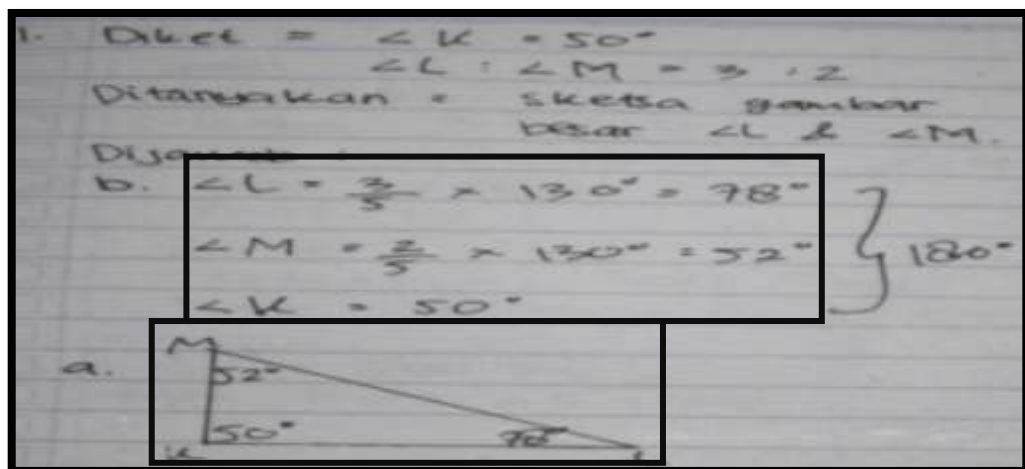 1. Diket = ∠K = 50°
∠L : ∠M = 3 : 2
Ditanyakan = sketsa gambar
besar ∠L & ∠M.
Dijawab :
b. ∠L = 3/5 × 130° = 78°
∠M = 2/5 × 130° = 52° } 180°
∠K = 50°
a. M
52°
50° 78°
K L